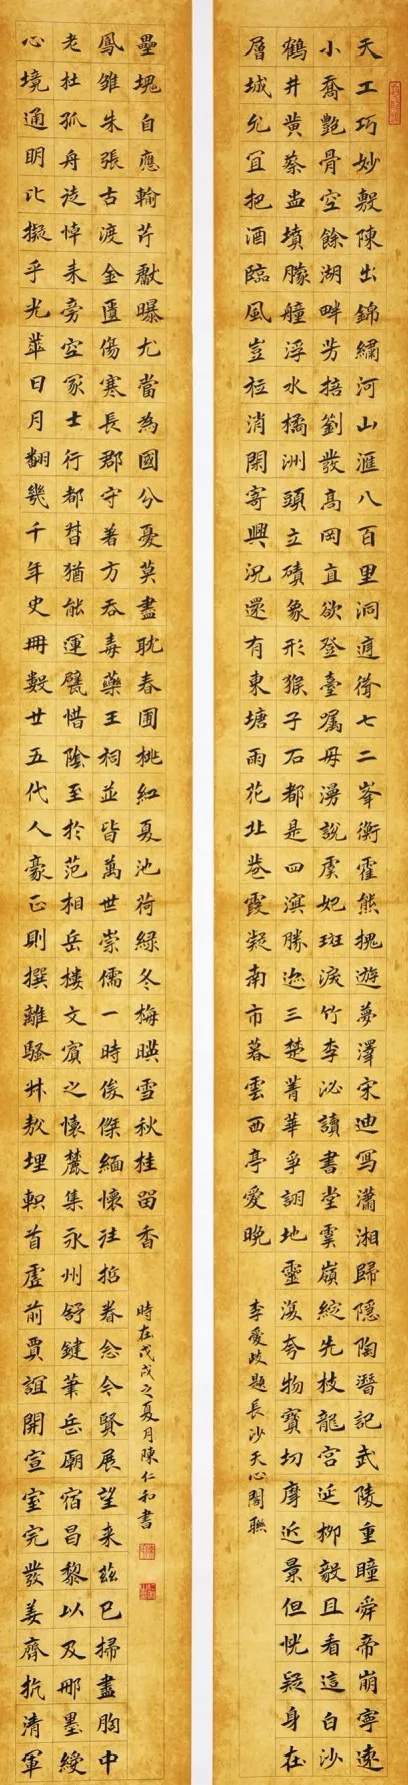 天工巧妙敷陳出錦繡河山滙八百里洞庭聳七二峯衡霍熊槐遊夢澤宋迪寫瀟湘歸隱陶潛記武陵重瞳舜帝崩寧遠
小喬艷骨空餘湖畔芳掊劉發高岡直欲登臺囑毋湧說虞妃斑淚竹李泌讀書堂雲嶺綻先枝龍宮延柳毅且看這白沙
鶴井黄蔡盅墳朦艟浮水橘洲頭立磧象形猴子石都是四濱勝迹三楚菁華爭詡地靈復夸物寶切摩近景但恍疑身在
層城允宜把酒臨風豈祇消閑寄興況還有東塘雨花北巷霞凝南市暮雲西亭愛晚
李愛岐題長沙天心閣聯
心境通明比擬乎光華日月翻幾千年史冊數廿五代人豪正則撰離騷叔敖埋軹首虛前賈誼開宣室完發姜齊抗清軍
老杜孤舟悼耒旁空冢士行都督猶能運甓惜陰至於范相岳樓文賓之懷麓集永州舒鍵筆岳廟宿昌黎以及那墨綬
鳳雛朱張古渡金匱傷寒長郡守著方吞毒藥王祠並皆萬世崇儒一時俊傑緬懷往哲眷念今賢展望来茲已掃盡胸中
壘塊自應輸芹獻曝尤當為國分憂莫盡耽春圃桃紅夏池荷綠冬梅暎雪秋桂留香
時在戊戌之夏月陳仁和書